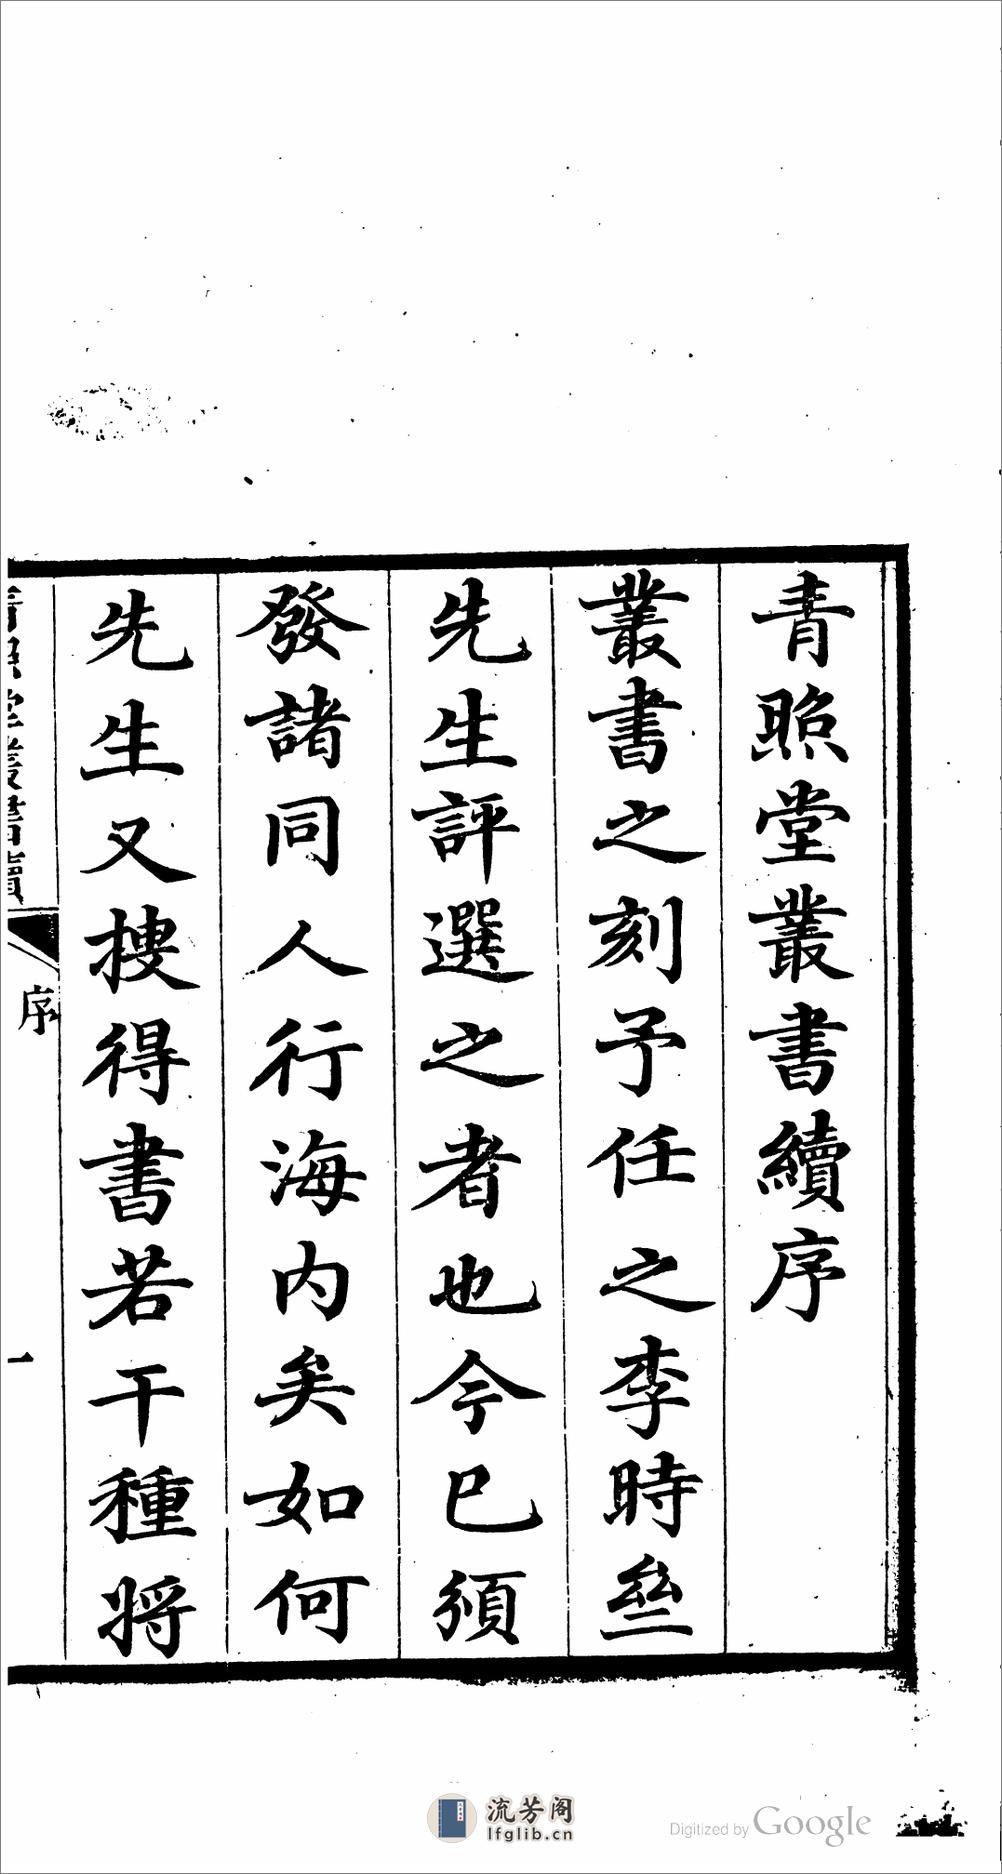 青照堂叢書續序
叢書之刻予任之李時叁
先生評選之者也今已頒
發諸同人行海内矣如何
先生又捜得書若干種將
青照堂叢書續
序
一
流芳阁
lfglib.cn
Digitized by Google